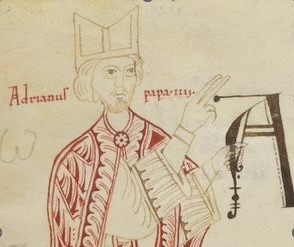 Adrianus papa·iiii·
A